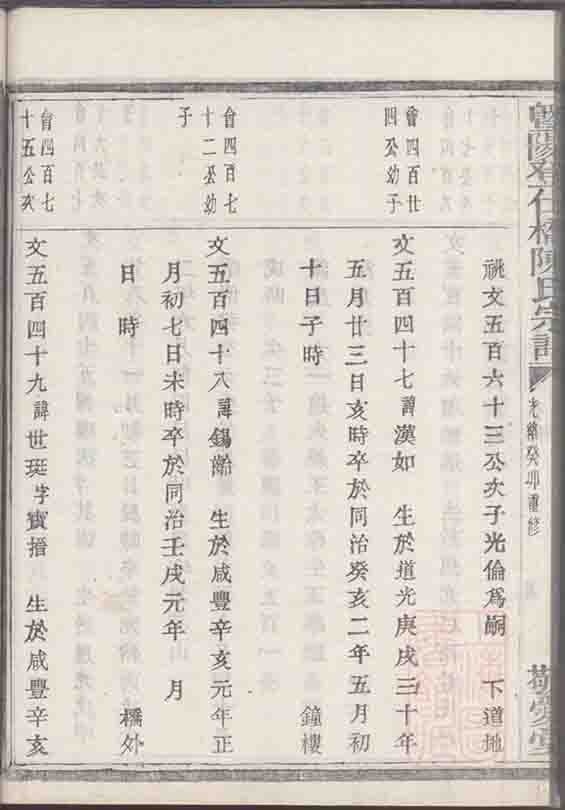 暨陽春仁橋陳氏宗譜
光緒癸卯重修
敬愛堂
祧文五百六十三公次子光倫為嗣 下道地
會四百廿
四公幼子
文五百四十七諱漢如 生於道光庚戌三十年
五月廿三日亥時卒於同治癸亥二年五月初
十日子時 鐘樓
會四百七
十二公幼
子
文五百四十八諱錫齡 生於咸豐辛亥元年正
月初七日未時卒於同治壬戌元年 月
日 時 橋外
會四百七
十五公次
文五百四十九諱世珽字寶搢 生於咸豐辛亥